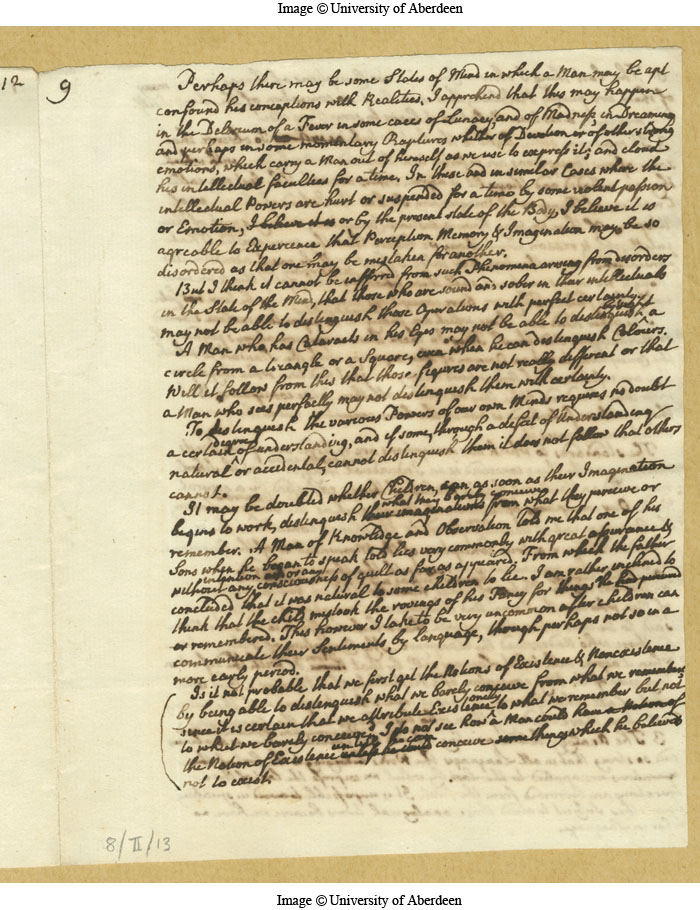 Image © University of Aberdeen
12
9
Perhaps there may be some States of Mind in which a Man may be apt
confound his conceptions with Realities, I apprehend that this may happen
in the Delirium of a Fever in some cases of Lunacy, and of Madness in Dreaming
and perhaps in some momentary Raptures whether of Devotion or of other strong
emotions, which carry a Man out of himself as we use to express it; and cloud
his intellectual faculties for a time. In these and in similar Cases where the
intellectual Powers are hurt or suspended for a time by some violent passion
or Emotion, I believe it is or by the present state of the Body, I believe it is
agreable to Experience that Perception Memory & Imagination may be so
disordered as that one may be mistaken for another.
But I think it cannot be inferred from such Phenomena arising from disorders
in the State of the Mind, that those who are sound and sober in their intellectuals
may not be able to distinguish those Operations with perfect certainty.
A Man who has Cataracts in his Eyes may not be able to distinguish a
circle from a triangle or a Square, even when he can distinguish Colours.
Will it follow from this that those figures are not really different or that
a Man who sees perfectly may not distinguish them with certainty.
To distinguish the various Powers of our own Minds requires no doubt
degree
a certain of understanding, and if some, through a defect of Understanding
natural or accidental, cannot distinguish them it does not follow that others
cannot.
It may be doubted whether Children, as soon as their Imagination
what they barely conceive
begins to work, distinguish their imaginations from what they perceive or
remember. A Man of Knowledge and Observation told me that one of his
Sons when he began to speak told lies very commonly with great assurance &
intention or any
without any consciousness of guilt as far as appeard. From which the father
concluded that it was natural to some children to lie. I am rather inclined to
think that the child mistook the rovings of his Fancy for things he had perceived
or remembered. This however I take to be very uncommon after children can
communicate their Sentiments by language, though perhaps not so in a
more early period.
Is it not probable that we first get the Notions of Existence & Nonexistence
by being able to distinguish what we barely conceive from what we remember
only
since it is certain that we attribute Existence to what we remember but not
to what we barely conceive? I do not see how a Man could have a Notion of
unless he can
the Notion of Existence unless he could conceive some things which he believes
not to exist.
8/II/13
Image © University of Aberdeen